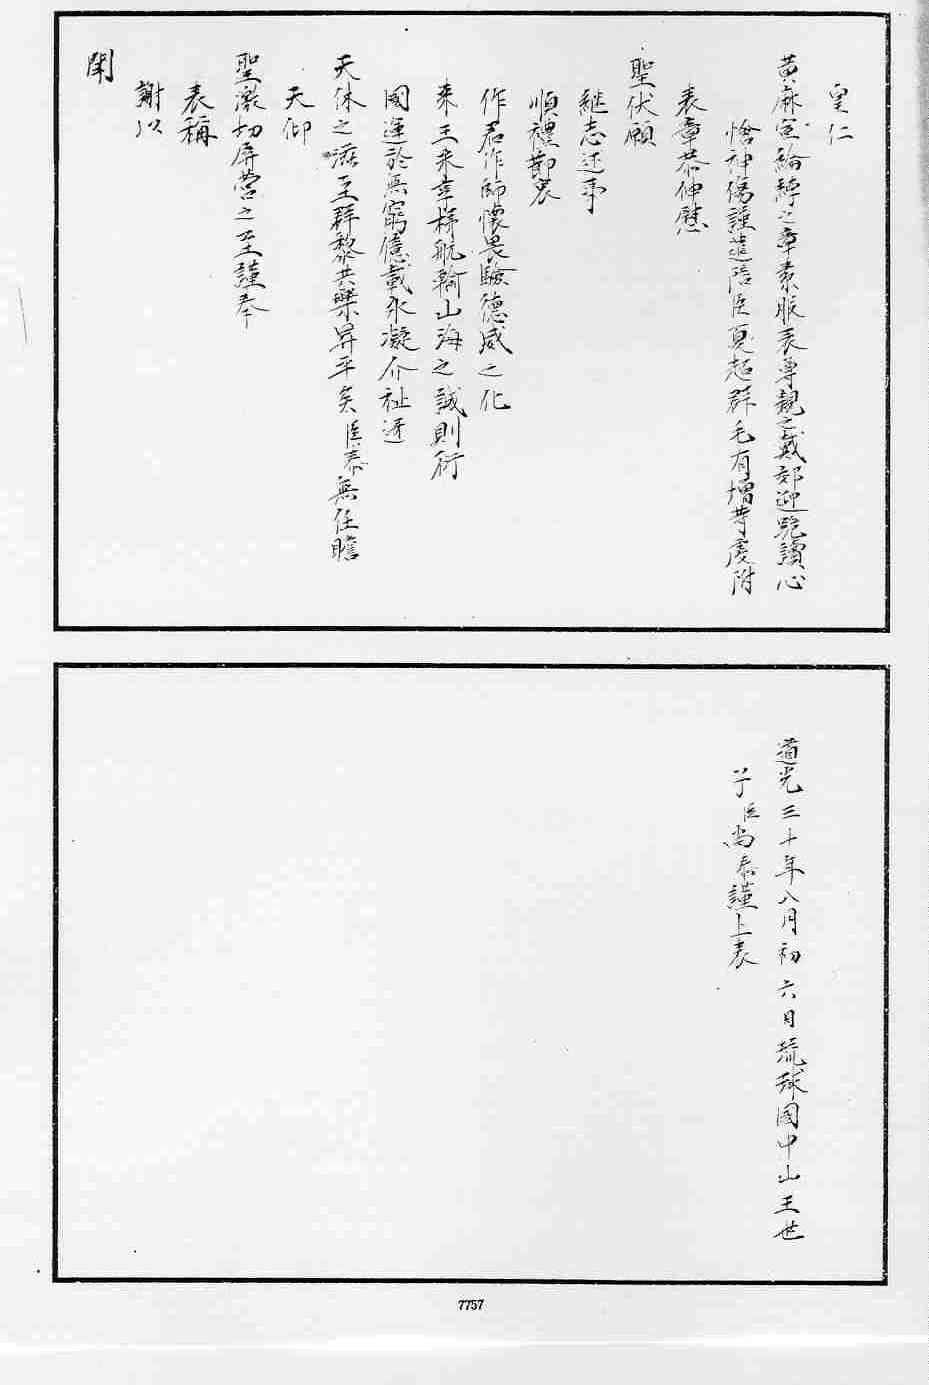 皇仁
黃麻宣綸綍之章素服表尊親之戴郊迎跪讀心
愴神傷謹遣陪臣夏超群毛有增等虔附
表章恭伸慰
聖伏願
繼志述事
順禮節哀
作君作師懷畏驗德威之化
來王來享梯航輸山海之誠則衍
國運於無窮億載永凝介祉迓
天休之滋至群黎共樂昇平矣臣泰無任瞻
天仰
聖激切屏營之至謹奉
表稱
謝以
聞
道光三十年八月初六日琉球國中山王世
子臣尚泰謹上表
7757